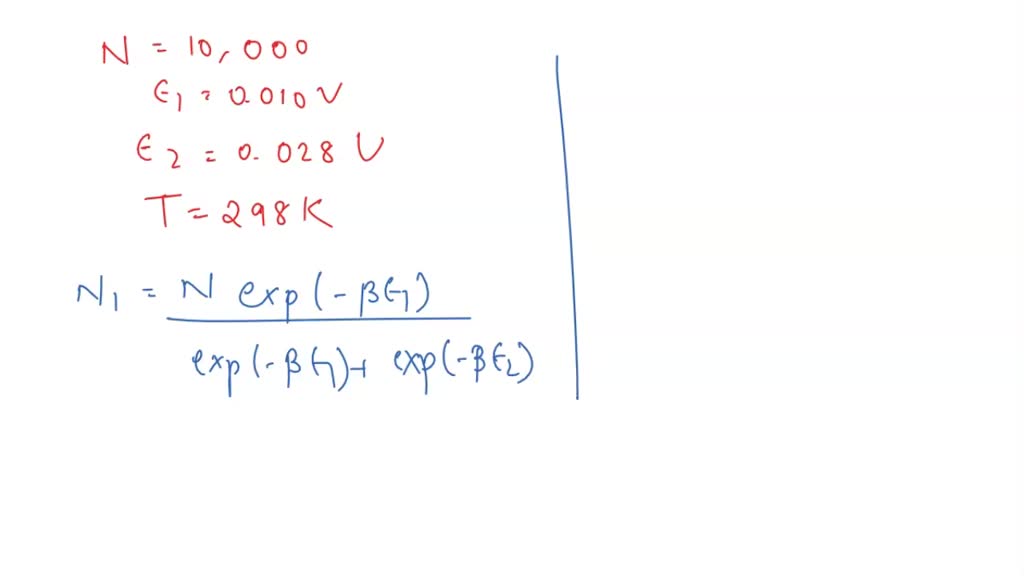 N = 10,000
ϵ1 = 0.010 V
ϵ2 = 0.028 V
T = 298 K
N1 = N exp(-βϵ1)
exp(-βϵ1)+ exp(-βϵ2)